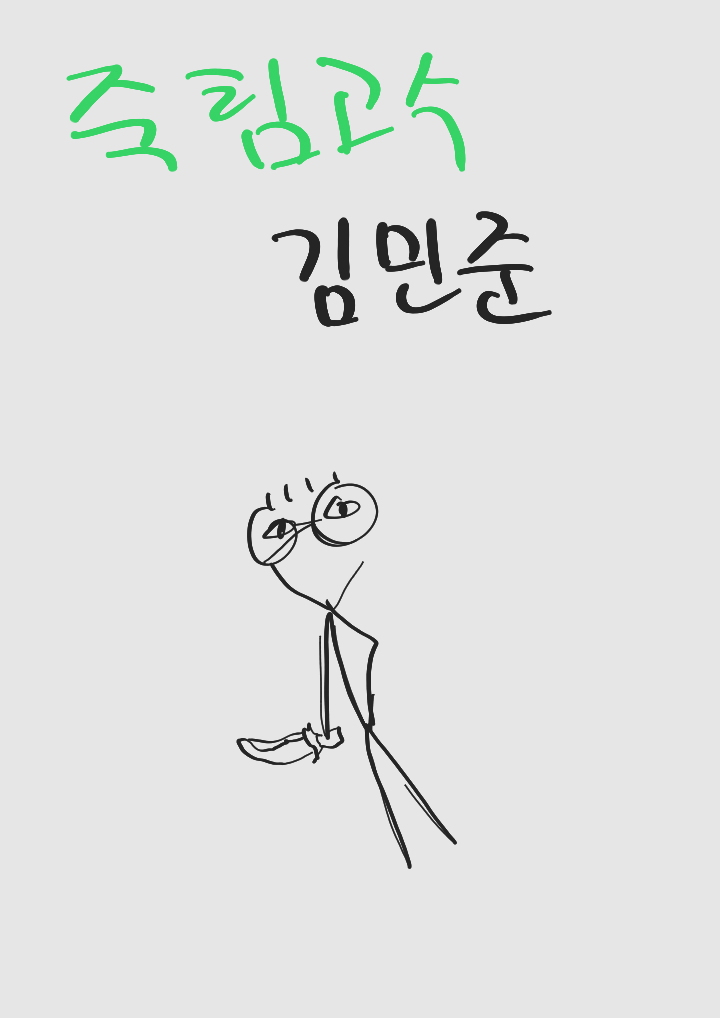 죽림고수
김민준